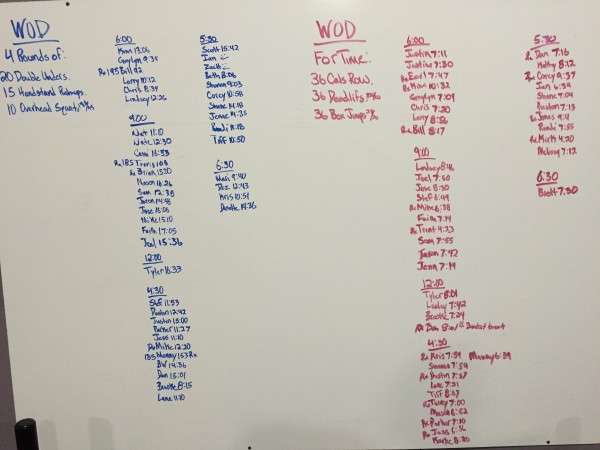 WOD
4 Rounds of:
20 Double Unders
15 Handstand Pushups
10 Overhead Squats
6:00
Kim 13:06
Graylyn 9:34
Rx 185 Bill 92
Larry 10:12
Chris 8:39
Lindsey 12:26
9:00
Nat 11:10
Nate 12:30
Cami 16:53
Rx 185 Travis 103
Rx Brian 15:20
Mason 16:26
Sam 12:38
Jason 14:48
Jose 15:08
Mike 15:10
Faith 17:05
Joel 15:36
12:00
Tyler 16:33
4:30
Stef 11:53
Pavlin 12:42
Justin 15:00
Parker 11:27
Jess 11:10
Rx Mike 12:20
185 Manny 153 Rx
BW 14:36
Dan 15:01
Brooke 8:15
Lane 11:10
5:30
Scott 15:42
Ian
Zach
Beth 8:06
Shannon 9:03
Corey 10:58
Shane 14:18
Jenne 14:35
Randi 11:18
Tiff 10:50
6:30
Mari 9:40
Dez 12:43
Kris 10:51
Deville 14:36
WOD
For Time:
36 Cals Row.
36 Deadlifts
36 Box Jumps
6:00
Justin 7:11
Justine 7:30
Rx Earl 7:47
Rx Kim 10:32
Graylyn 7:09
Chris 7:20
Lory 8:56
Rx Bill 8:17
9:00
Lindsey 8:46
Joel 7:50
Jose 8:30
Stef 6:49
Rx Mike 6:38
Faith 7:14
Rx Trent 4:23
Sam 7:55
Jason 7:42
Jenn 7:19
12:00
Tyler 8:01
Lesley 7:42
Brooke 7:24
Rx Dan
4:30
Rx Kris 7:59 Manny 6:39
Shannon 7:54
Rx Justin 7:27
Lane 7:21
Tiff 8:47
Rx Tony 7:00
Maria 6:52
Rx Parker 7:10
Rx Jess 6:36
Katie 8:20
5:30
Rx Dan 7:16
Mathy 8:12
Rx Corey 9:37
Jan 6:34
Shane 7:04
Pavlon 7:15
Rx Jenna 9:4
Randi 7:55
Rx Kirk 4:20
Melony 7:12
6:30
Brett 7:30